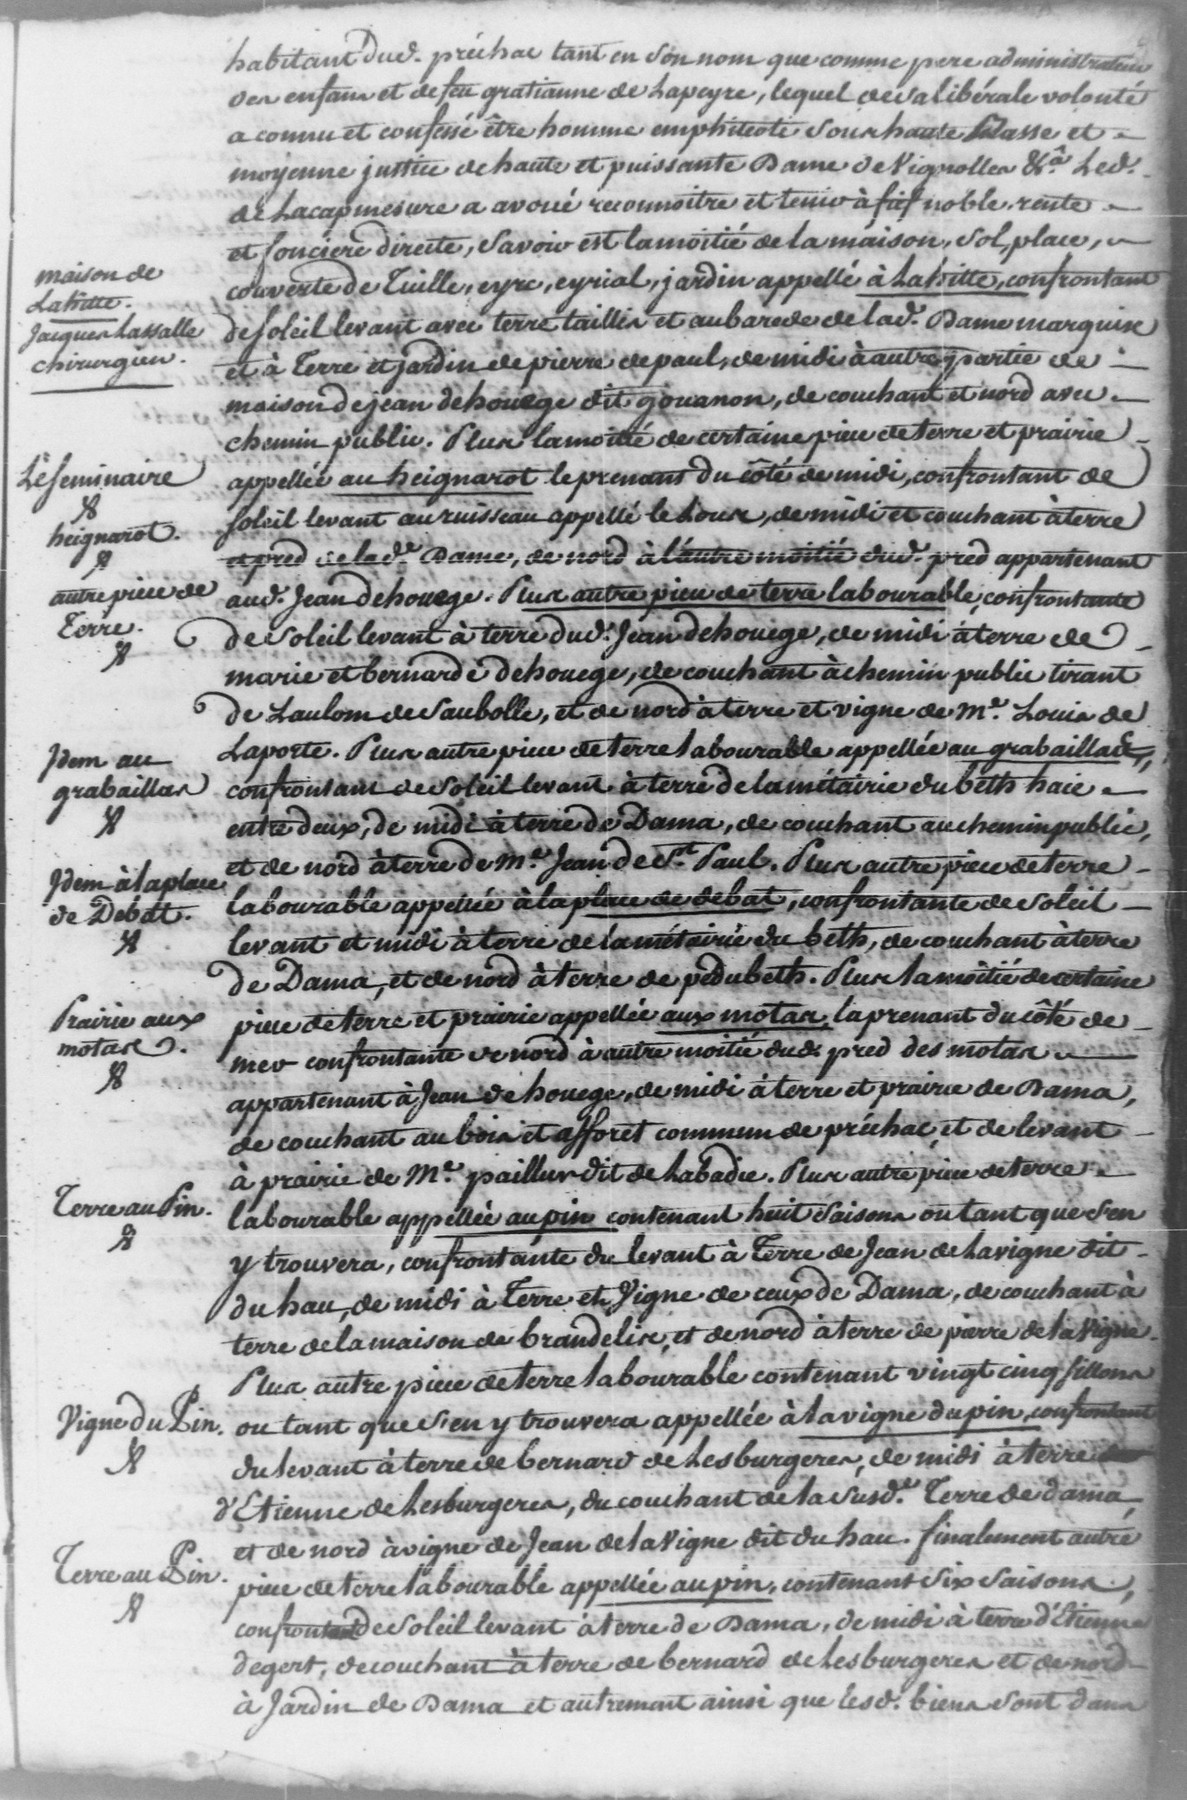 habitant dud. préchac tant en son nom que comme pere administrateur
des enfans et de feu gratianne de Lapeyre, lequel de sa libérale volonté
a connu et confessé être homme emphiteote sous haute Basse et
moyenne justice de haute et puissante Dame de Vignolles &ª. Led.
de Lacapmesure a avoué reconnoitre et tenir à fief noble rente
et fonciere directe, savoir est la moitié de la maison, sol, place,
couverte de Tuille, eyre, eyrial, jardin appellé à Lahitte, confrontant
de soleil levant avec terre taillis et aubarede de lad. Dame marquise
et à Terre et jardin de pierre de paul, de midi à autre partie de
maison de jean dehouege dit gouanon, de couchant et nord avec
chemin public. Plus la moitié de certaine piece de terre et prairie
appellée au heignarot le prenant du côté de midi, confrontant de
soleil levant au ruisseau appellé le Lous, de midi et couchant à terre
et pred de lad.e Dame, de nord à l'autre moitié dud. pred appartenant
aud. Jean dehouege. Plus autre piece de terre labourable, confrontante
de soleil levant à terre dud. Jean dehouege, de midi à terre de
marie et bernarde dehouege, de couchant à chemin public tirant
de Laulom de Saubolle, et de nord à terre et vigne de Me. Louis de
Laporte. Plus autre piece de terre labourable appellée au grabaillas,
confrontant de soleil levant à terre de la métairie du beth haie
entre deux, de midi à terre de Dama, de couchant au chemin public,
et de nord à terre de Me. Jean de St. Paul. Plus autre piece de terre
labourable appellée à la place de debat, confrontante de soleil
levant et midi à terre de la métairie du beth, de couchant à terre
de Dama, et de nord à terre de pedubeth. Plus la moitié de certaine
piece de terre et prairie appellée aux motas, la prenant du côté de
mer confrontante de nord à autre moitié dud. pred des motas
appartenant à Jean dehouege, de midi à terre et prairie de Dama,
de couchant au bois et afforet commun de préchac, et de levant
à prairie de Me. paillus dit de Labadie. Plus autre piece de terre
labourable appellée au pin contenant huit saisons ou tant que s'en
y trouvera, confrontante du levant à Terre de Jean de Lavigne dit
du hau, de midi à Terre et Vigne de ceux de Dama, de couchant à
terre de la maison de brandelis, et de nord à terre de pierre de la Vigne.
Plus autre piece de terre labourable contenant vingt cinq sillons
ou tant que s'en y trouvera appellée à la vigne du pin, confrontant
du levant à terre de bernard de Lesburgeres, de midi à terre
d'Etienne de Lesburgeres, du couchant de la susd.e Terre de dama
et de nord à vigne de Jean de la Vigne dit du hau. finalement autre
piece de terre labourable appellée au pin, contenant six saisons,
confrontant de soleil levant à terre de Dama, de midi à terre d'Etienne
degert, de couchant à terre de bernard de Lesburgeres et de nord
à Jardin de Dama et autrement ainsi que lesd. biens sont dans
maison de
Lahitte.
Jacques Lassalle
chirurgien.
Le Seminaire
heignarot.
autre piece de
Terre.
Idem au
grabaillas
Idem à la place
de Debat.
Prairie aux
motas.
Terre au Pin.
Vigne du Pin.
Terre au Pin.